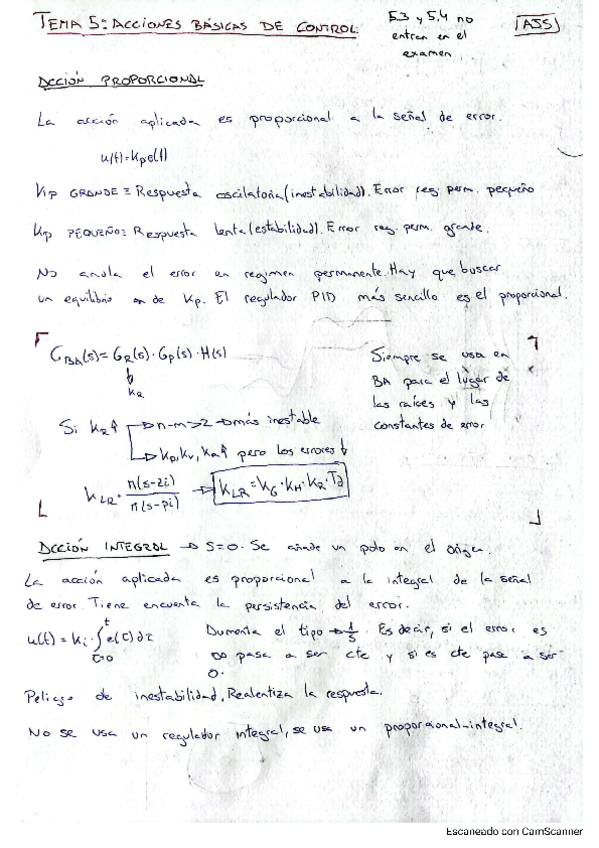 TEMA 5: ACCIONES BÁSICAS DE CONTROL
5.3 y 5.4 no
entran en el
examen
AJS
ACCIÓN PROPORCIONAL
La acción aplicada es proporcional a la señal de error.
u(t)=Kp e(t)
Kp GRANDE ≡ Respuesta oscilatoria (inestabilidad). Error reg. perm. pequeño
Kp PEQUEÑO: Respuesta lenta (estabilidad). Error reg. perm. grande.
No anula el error en regimen permanente. Hay que buscar
un equilibrio de Kp. El regulador PID más sencillo es el proporcional.
G_BA(s)=G_R(s)·G_P(s)·H(s)
↓
K_R
Siempre se usa en
BA para el lugar de
las raíces y las
constantes de error
Si K_R↑ → n-m>2 → más inestable
→ Kp, Kv, Ka↑ pero los errores ↓
K_LR · Π(s-zi)/Π(s-pi) → K_LR = K_G · K_H · K_R · Td
ACCIÓN INTEGRAL → S=0. Se añade un polo en el origen.
La acción aplicada es proporcional a la integral de la señal
de error. Tiene encuenta la persistencia del error.
u(t) = Ki · ∫_{τ=0}^{t} e(τ)dτ
Aumenta el tipo → 1/s. Es decir, si el error es
∞ pasa a ser cte y si es cte pasa a ser
0.
Peligro de inestabilidad. Realentiza la respuesta.
No se usa un regulador integral, se usa un proporcional-integral.
Escaneado con CamScanner